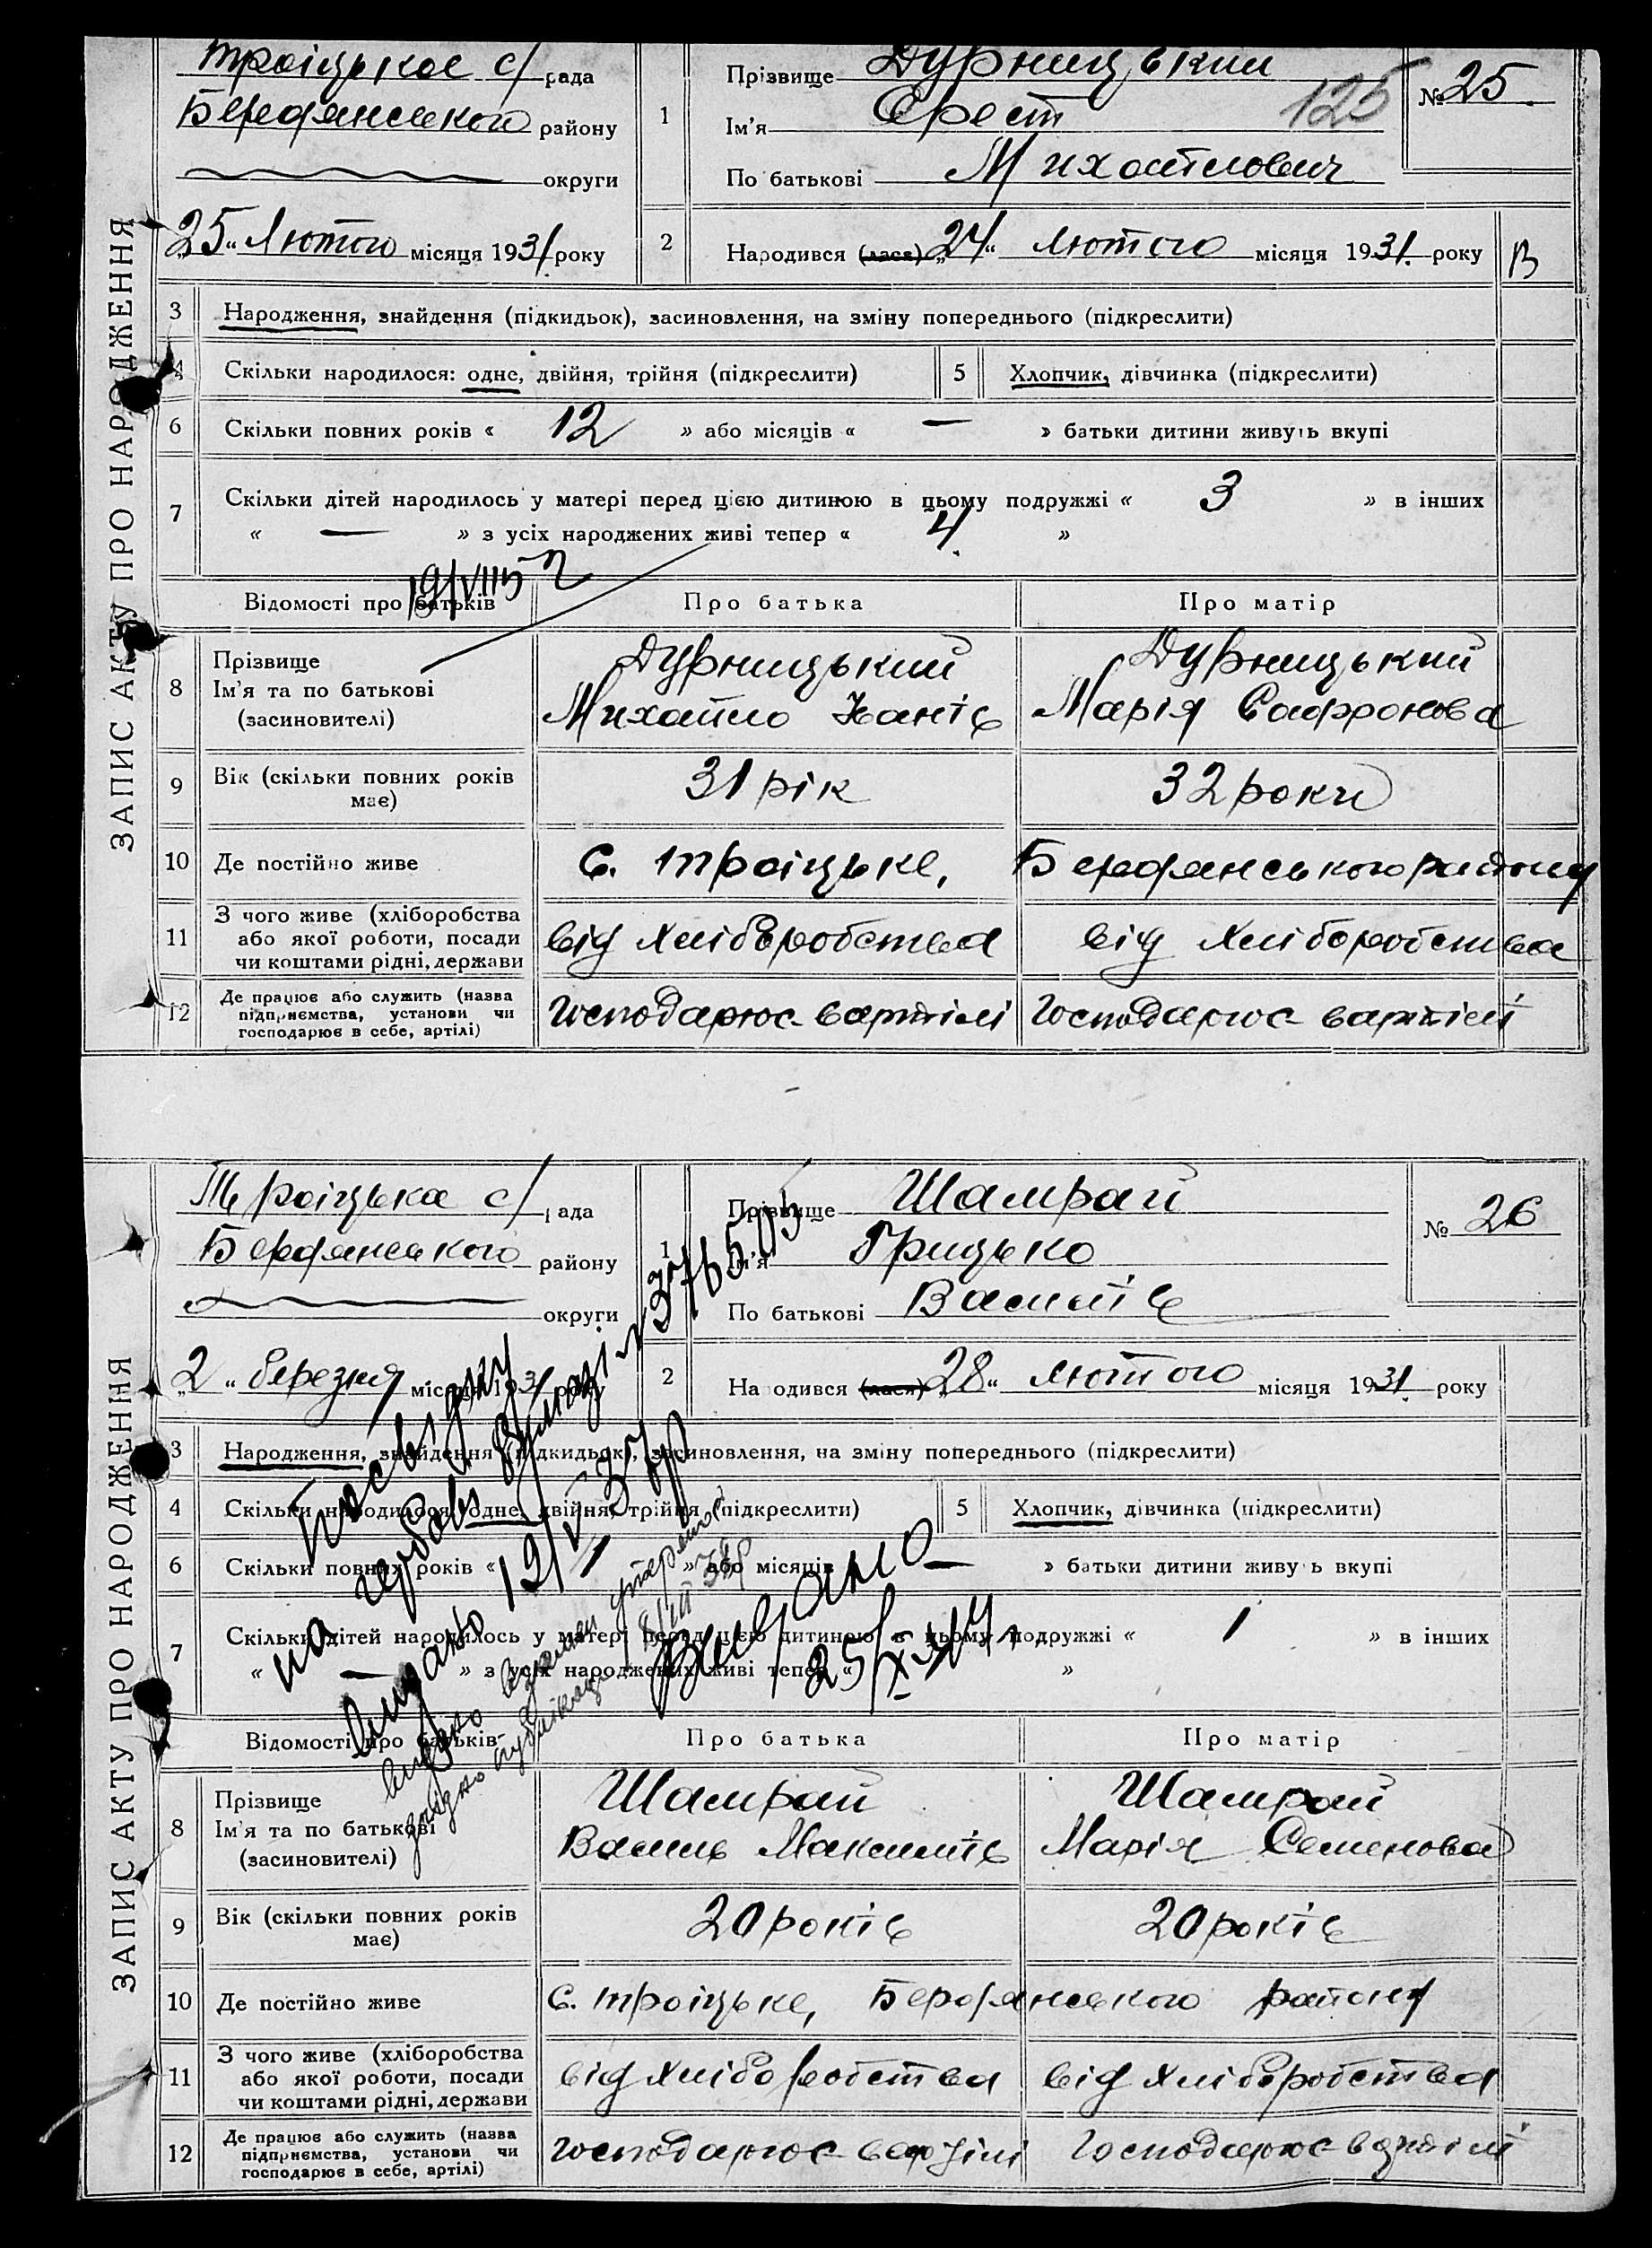 ЗАПИС АКТУ ПРО НАРОДЖЕННЯ
Троіцькое с/рада
Бердянського району
округи
25 „ Лютого місяця 1931 року
1 Прізвище Дурницький
Ім'я Орест
По батькові Михайлович
125
№ 25.
2 Народився (лася) „24“ лютого місяця 1931. року
В
3 Народження, знайдення (підкидьок), засиновлення, на зміну попереднього (підкреслити)
4 Скільки народилося: одне, двійня, трійня (підкреслити) 5 Хлопчик, дівчинка (підкреслити)
6 Скільки повних років « 12 » або місяців « — » батьки дитини живуть вкупі
7 Скільки дітей народилось у матері перед цією дитиною в цьому подружжі « 3 » в інших
« — » з усіх народжених живі тепер « 4. »
Відомості про батьків Про батька Про матір
8 Прізвище Дурницький Дурницький
Ім'я та по батькові Михайло Іванів Марія Сафронова
(засиновителі)
9 Вік (скільки повних років має) 31 рік 32 роки
10 Де постійно живе с. Троіцьке, Бердянського району
11 З чого живе (хліборобства або якої роботи, посади чи коштами рідні, держави від хліборобства від хліборобства
12 Де працює або служить (назва підприємства, установи чи господарює в себе, артілі) Господарює в артілі Господарює в артілі
ЗАПИС АКТУ ПРО НАРОДЖЕННЯ
Троіцька с/рада
Бердянського району
округи
„2“ березня місяця 1931 року
1 Прізвище Шамрай
Ім'я Грицько
По батькові Василів
№ 26
2 Народився (лася) „28“ лютого місяця 1931. року
3 Народження, знайдення (підкидьок), засиновлення, на зміну попереднього (підкреслити)
4 Скільки народилося: одне, двійня, трійня (підкреслити) 5 Хлопчик, дівчинка (підкреслити)
6 Скільки повних років « 1 » або місяців « — » батьки дитини живуть вкупі
7 Скільки дітей народилось у матері перед цією дитиною в цьому подружжі « 1 » в інших
« — » з усіх народжених живі тепер « »
Посвідку
на гербов
видано
Видано
Відомості про батьків Про батька Про матір
8 Прізвище Шамрай Шамрай
Ім'я та по батькові Василь Максимів Марія Семенова
(засиновителі)
9 Вік (скільки повних років має) 20 років 20 років
10 Де постійно живе с. Троіцьке, Бердянського району
11 З чого живе (хліборобства або якої роботи, посади чи коштами рідні, держави від хліборобства від хліборобства
12 Де працює або служить (назва підприємства, установи чи господарює в себе, артілі) Господарює в артілі Господарює в артілі